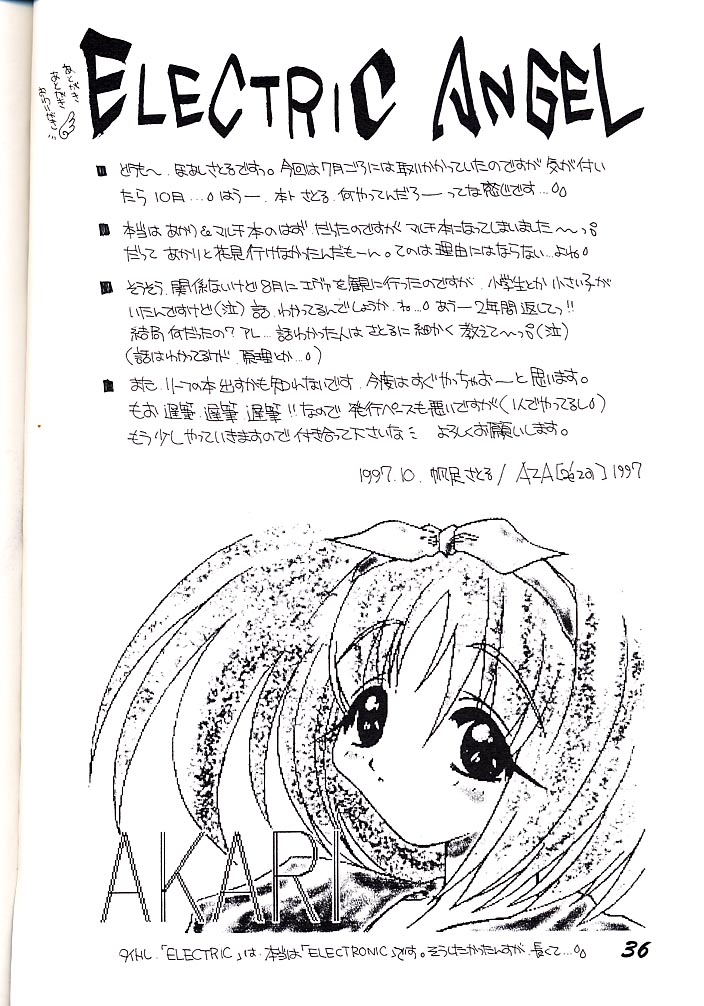 ELECTRIC ANGEL
あとがき
あとがき
どうもー、ほあしさとるですっ。今回は7月ごろには取りかかっていたのですが 気が付い
たら 10月…。はうー、本ト さとる、何やってんだろーってな感じです…。
本当は あかり&マルチ本のはず だったのですが マルチ本になってしまいました〜っ。
だって あかりと花見行けなかったんだもーん。てのは 理由にはならない…よね。
そうそう、関係ないけど 8月に エヴァを観に行ったのですが、小学生とか 小さい子が
いたんですけど(泣) 話、わかってるんでしょうか、ね…。あうー 2年間返してっ!!
結局 何だったの? アレ… 話わかった人は さとるに 細かく 教えて〜っ。(泣)
(話はわかってるけど、原理とか…。)
また、リーフの本出すかも知れないです、今度はすぐやっちゃおーと思います。
もお 遅筆、遅筆 遅筆!! なので 発行ペースも悪いですが(1人でやってるし)
もう少しやっていきますので 付き合って下さいな ミ よろしくお願いします。
1997.10. 帆足さとる / AZA 1997
AKARI
タイトル、「ELECTRIC」は、本当は「ELECTRONIC」です。そうしたかったんすが、長くて…。
36